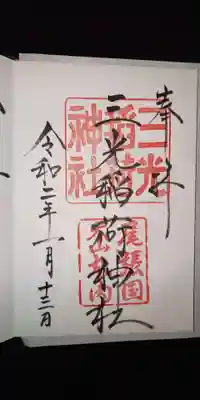 奉拝
三光
稲荷
神社
三光稲荷神社
尾張国
犬山城内
令和二年一月十三日